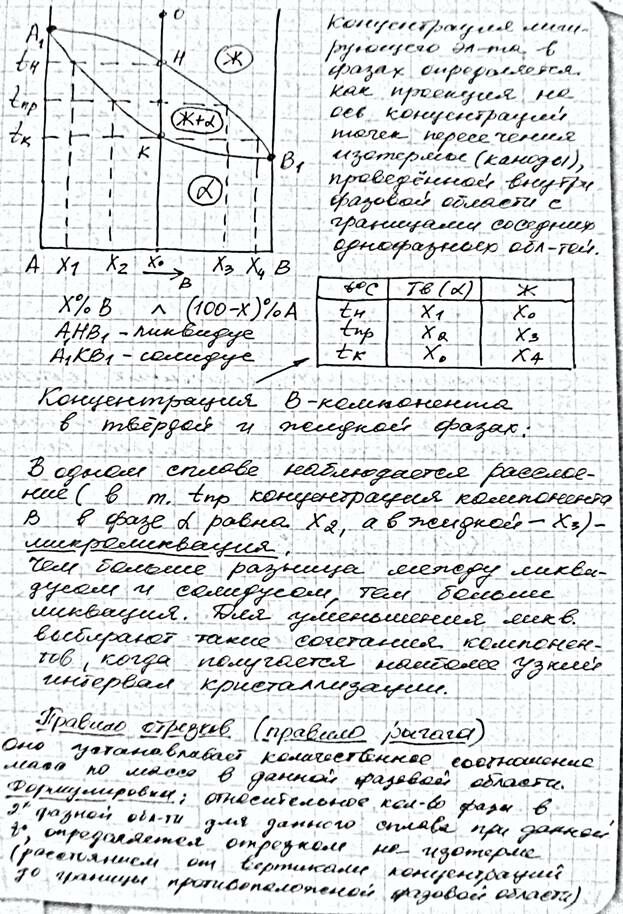 A₁
tн
tпр
tк
O
H
Ж
Ж+α
К
α
B₁
A X₁ X₂ X₀ B X₃ X₄ B
Концентрация леги-
рующего эл-та в
фазах определяется
как проекция на
ось концентраций
точек пересечения
изотермы (каноды),
проведённой внутри
фазовой области с
границами соседних
однофазных обл-тей.
X% B ∧ (100-X)% A
A₁HB₁ - ликвидус
A₁KB₁ - солидус
t°C Тв (α) Ж
tн X₁ X₀
tпр X₂ X₃
tк X₀ X₄
Концентрация B-компонента
в твёрдой и жидкой фазах.
В одном сплаве наблюдается расслое-
ние (в т. tпр концентрация компонента
B в фазе α равна X₂, а в жидкой - X₃) -
микроликвация.
Чем больше разница между ликви-
дусом и солидусом, тем больше
ликвация. Для уменьшения ликв.
выбирают такие сочетания компонен-
тов, когда получается наиболее узкий
интервал кристаллизации.
Правило отрезков (правило рычага)
Оно устанавливает количественное соотношение
масса по массе в данной фазовой области.
Формулировки: относительное кол-во фазы в
2ˣ фазной обл-ти для данного сплава при данной
t°, определяется отрезком на изотерме
(расстоянием от вертикали концентраций
до границы противоположной фазовой области)